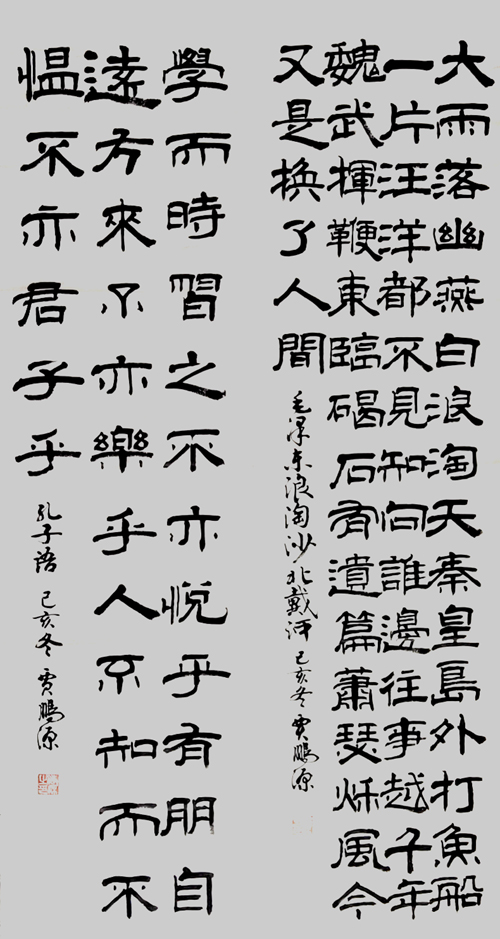 大雨落幽燕白浪淘天秦皇島外打魚船
一片汪洋都不見知向誰邊往事越千年
魏武揮鞭東臨碣石有遺篇蕭瑟秌風今
又是換了人間 毛澤東浪淘沙北戴河 己亥冬 賈鵬源
學而時習之不亦悅乎有朋自
遠方來不亦樂乎人不知而不
愠不亦君子乎 孔子語 己亥冬 賈鵬源